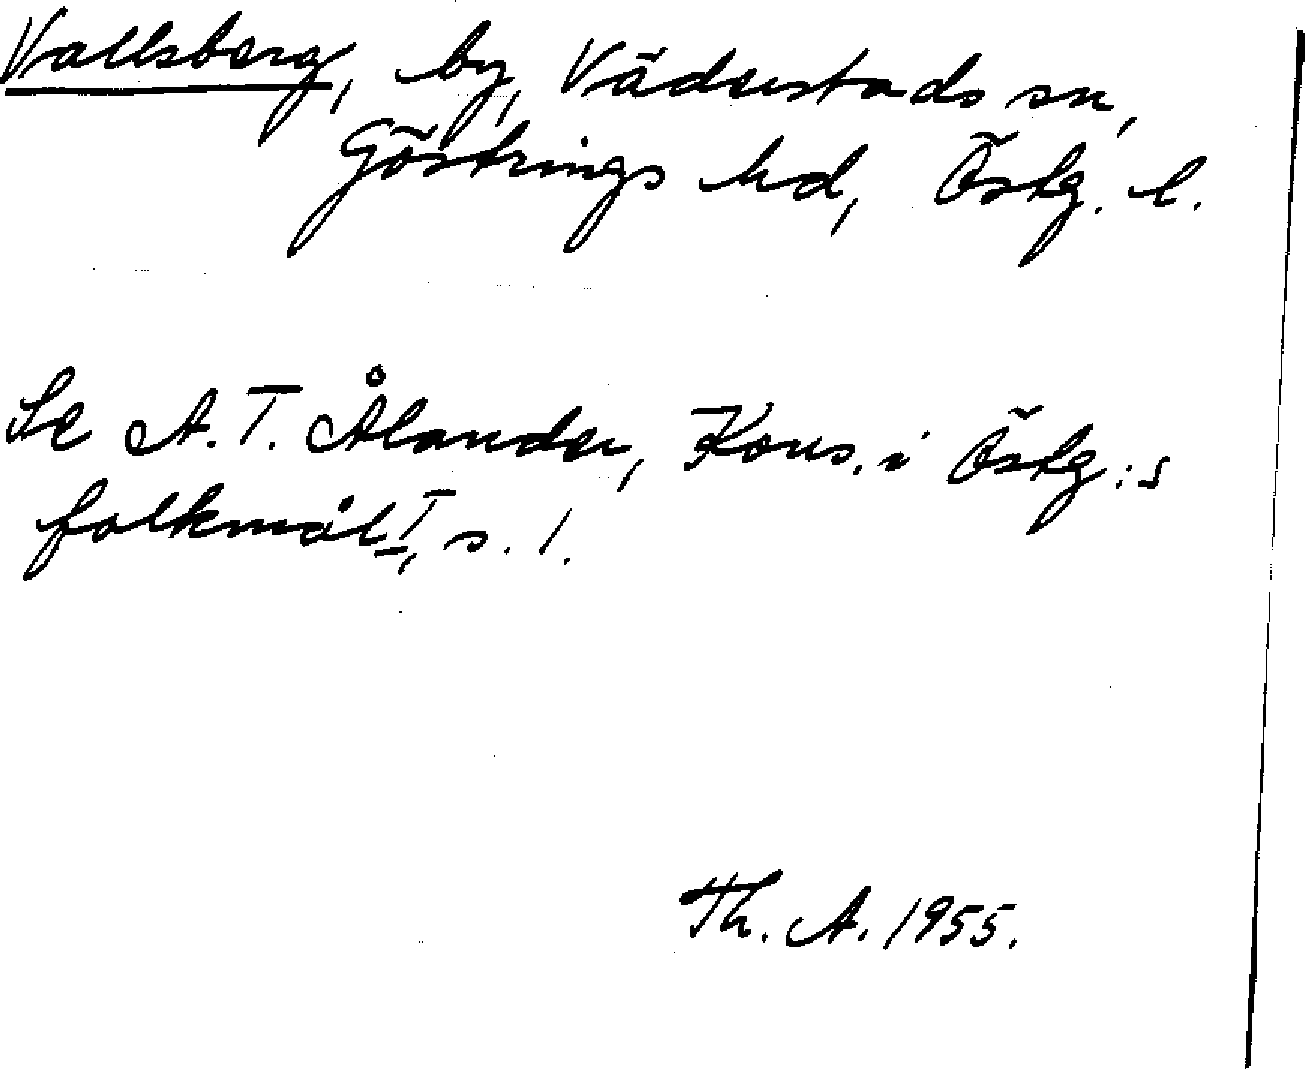 Vallsberg, by, Väderstads sn,
Göstrings hd, Östg. l.
Se A. T. Ålander, Kons. i Östg:s
folkmål I, s. 1.
Th. A. 1955.